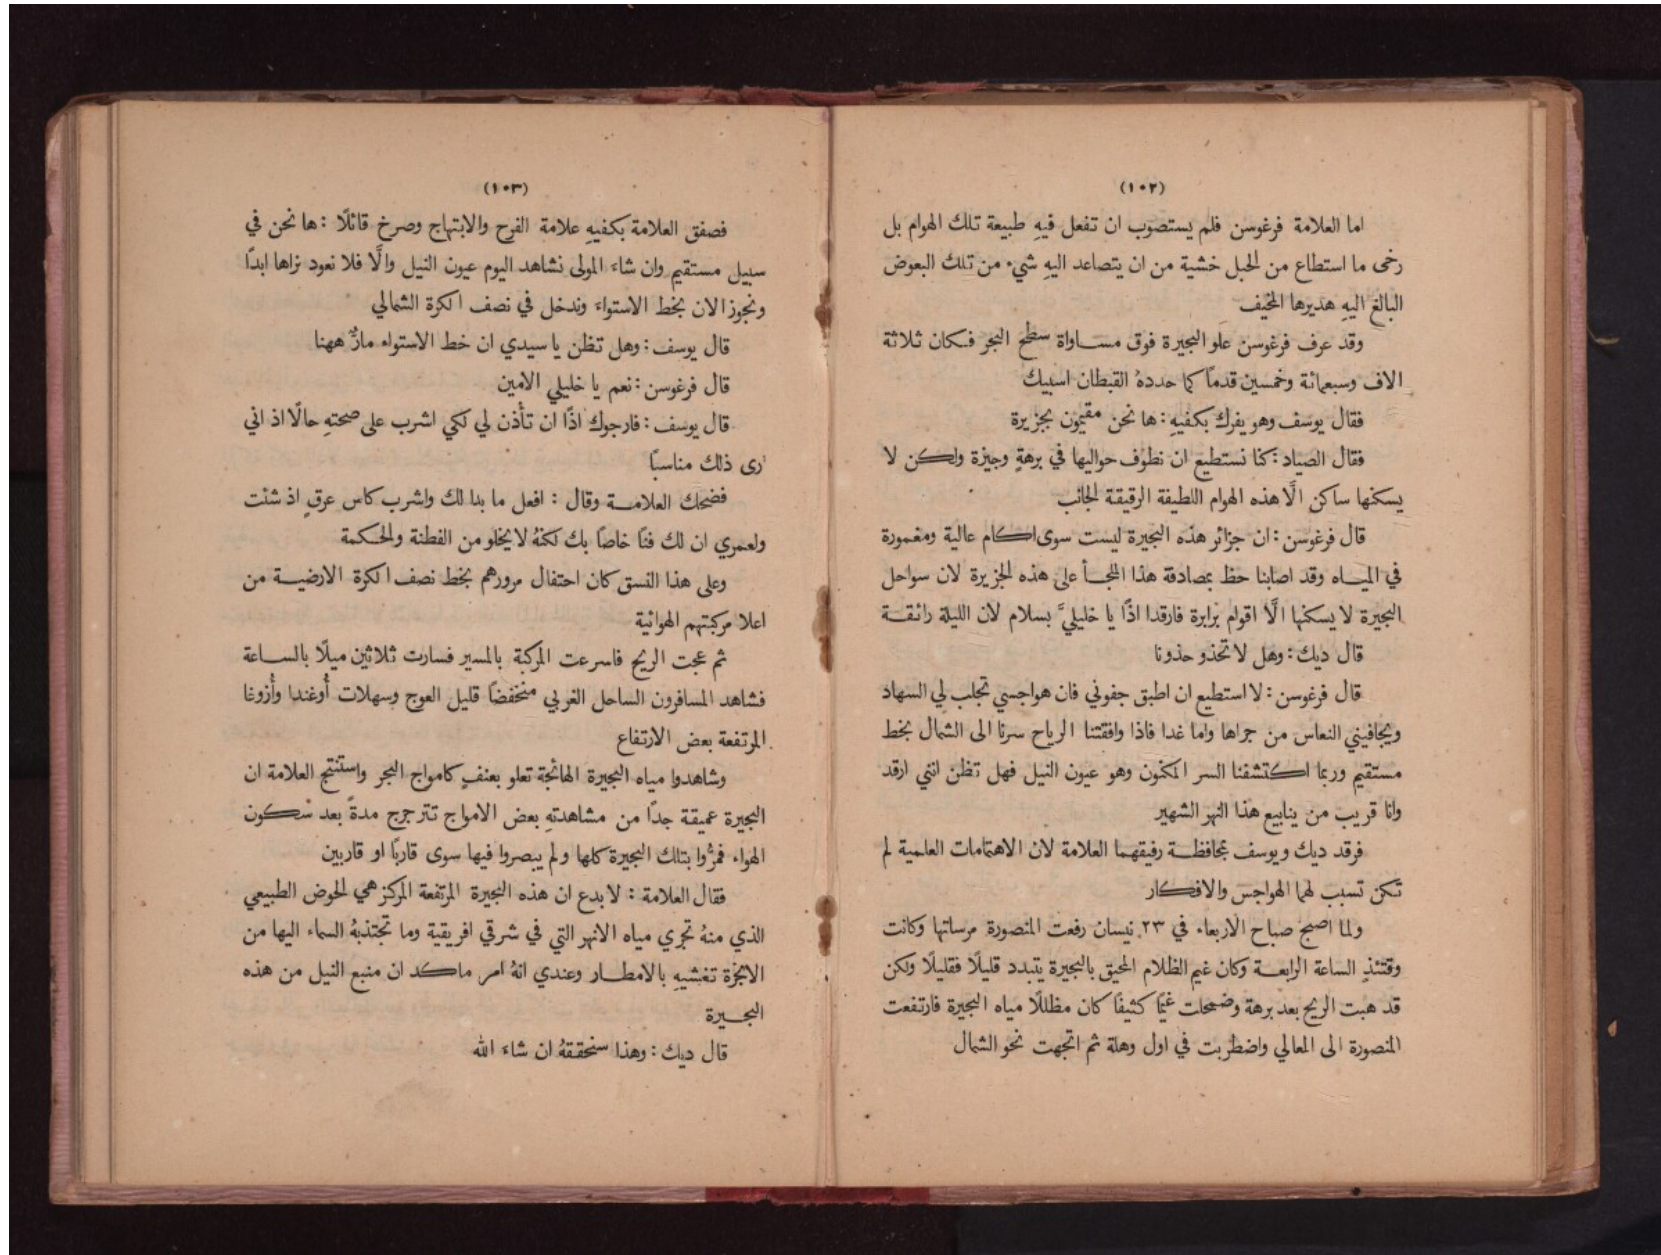 (١٠٢)
اما العلامة فرغوسن فلم يستصوب ان تفعل فيهِ طبيعة تلك الهوام بل
رخى ما استطاع من الحبل خشية من ان يتصاعد اليهِ شيء من تلك البعوض
البالغ اليهِ هديرها المخيف
وقد عرف فرغوسن علو البحيرة فوق مساواة سطح البحر فكان ثلاثة
الاف وسبعمائة وخمسين قدمًا كما حددهُ القبطان اسبيك
فقال يوسف وهو يفرك بكفيهِ : ها نحن مقيمون بجزيرة
فقال الصياد : كنا نستطيع ان نطوف حواليها في برهةٍ وجيزة ولكن لا
يسكنها ساكن الَّا هذه الهوام اللطيفة الرقيقة الجانب
قال فرغوسن : ان جزائر هذه البحيرة ليست سوى اكام عالية ومغمورة
في المياه وقد اصابنا حظ بمصادفة هذا الملجأ على هذه الجزيرة لان سواحل
البحيرة لا يسكنها الَّا اقوام برابرة فارقدا اذًا يا خليليَّ بسلام لان الليلة رائقة
قال ديك : وهل لا تحذو حذونا
قال فرغوسن : لا استطيع ان اطبق جفوني فان هواجسي تجلب لي السهاد
ويجافيني النعاس من جراها واما غدا فاذا وافقتنا الرياح سرنا الى الشمال بخط
مستقيم وربما اكتشفنا السر المكنون وهو عيون النيل فهل تظن انني ارقد
وانا قريب من ينابيع هذا النهر الشهير
فرقد ديك ويوسف بمحافظة رفيقهما العلامة لان الاهتمامات العلمية لم
تكن تسبب لهما الهواجس والافكار
ولما اصبح صباح الاربعاء في ٢٣ نيسان رفعت المنصورة مرساتها وكانت
وقتئذٍ الساعة الرابعة وكان غيم الظلام المحيق بالبحيرة يتبدد قليلًا فقليلًا ولكن
قد هبت الريح بعد برهة وضمحلت غيمًا كثيفًا كان مظللًا مياه البحيرة فارتفعت
المنصورة الى المعالي واضطربت في اول وهلة ثم اتجهت نحو الشمال
(١٠٣)
فصفق العلامة بكفيهِ علامة الفرح والابتهاج وصرخ قائلًا : ها نحن في
سبيل مستقيم وان شاء المولى نشاهد اليوم عيون النيل والَّا فلا نعود نراها ابدًا
ونجوز الان بخط الاستواء وندخل في نصف الكرة الشمالي
قال يوسف : وهل تظن يا سيدي ان خط الاستواء مارٌّ ههنا
قال فرغوسن : نعم يا خليلي الامين
قال يوسف : فارجوك اذًا ان تأذن لي لكي اشرب على صحتهِ حالًا اذ اني
ارى ذلك مناسبًا
فضحك العلامة وقال : افعل ما بدا لك واشرب كاس عرقٍ اذ شئت
ولعمري ان لك فنًا خاصًا بك لكنهُ لا يخلو من الفطنة والحكمة
وعلى هذا النسق كان احتفال مرورهم بخط نصف الكرة الارضية من
اعلا مركبتهم الهوائية
ثم عجت الريح فاسرعت المركبة بالمسير فسارت ثلاثين ميلًا بالساعة
فشاهد المسافرون الساحل الغربي منخفضًا قليل العوج وسهلات أُوغندا وأُزوغا
المرتفعة بعض الارتفاع
وشاهدوا مياه البحيرة الهائجة تعلو بعنفٍ كامواج البحر واستنتج العلامة ان
البحيرة عميقة جدًا من مشاهدتهِ بعض الامواج تترجرج مدةً بعد سكون
الهواء فمرُّوا بتلك البحيرة كلها ولم يبصروا فيها سوى قاربًا او قاربين
فقال العلامة : لا بدع ان هذه البحيرة المرتفعة المركز هي الحوض الطبيعي
الذي منهُ تجري مياه الانهر التي في شرقي افريقية وما تجتذبهُ السماء اليها من
الابخرة تغشيهِ بالامطار وعندي انهُ امر ماكد ان منبع النيل من هذه
البحيرة
قال ديك : وهذا سنحققهُ ان شاء الله